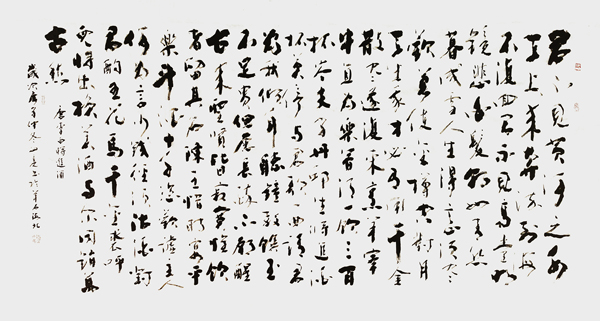 君不見黃河之水
天上來奔流到海
不復回君不見高堂明
鏡悲白髮朝如青絲
暮成雪人生得意須盡
歡莫使金樽空對月
天生我才必有用千金
散盡還復來烹羊宰
牛且為樂會須一飲三百
杯岑夫子丹邱生將進酒
杯莫停與君歌一曲請君
為我傾耳聽鐘鼓饌玉
不足貴但願長醉不願醒
古來聖賢皆寂寞惟飲
者留其名陳王昔時宴平
樂斗酒十千恣歡謔主人
何為言少錢徑須沽酒對
君酌五花馬千金裘呼
兒將出換美酒與爾同銷萬
古愁
唐李白將進酒
歲次庚子仲冬